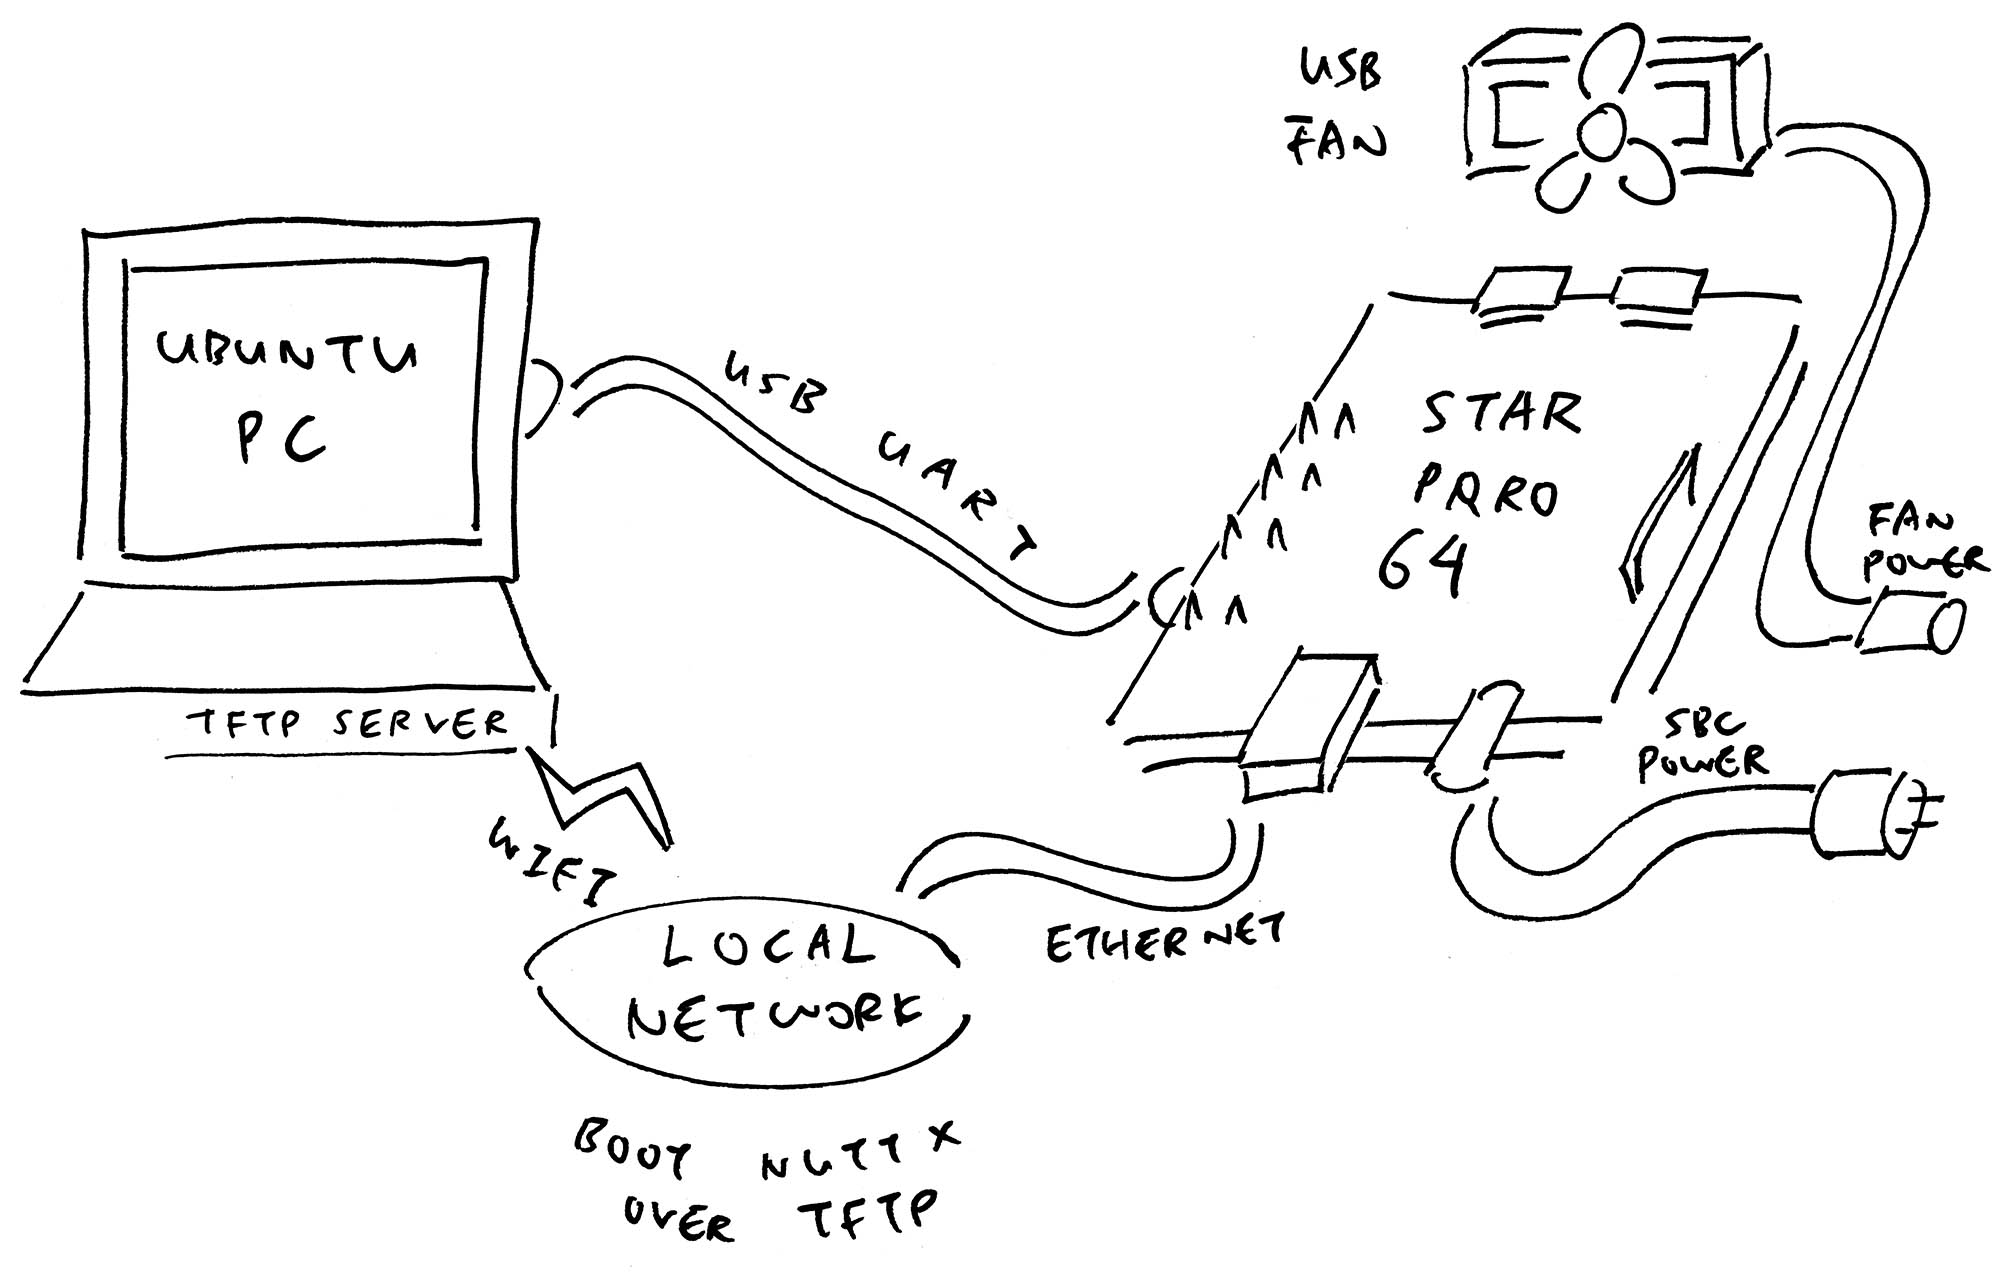 USB
FAN
UBUNTU
PC
USB UART
STAR
PRO
64
FAN
POWER
TFTP SERVER
SBC
POWER
WIFI
LOCAL
NETWORK
ETHERNET
BOOT NUTTX
OVER TFTP